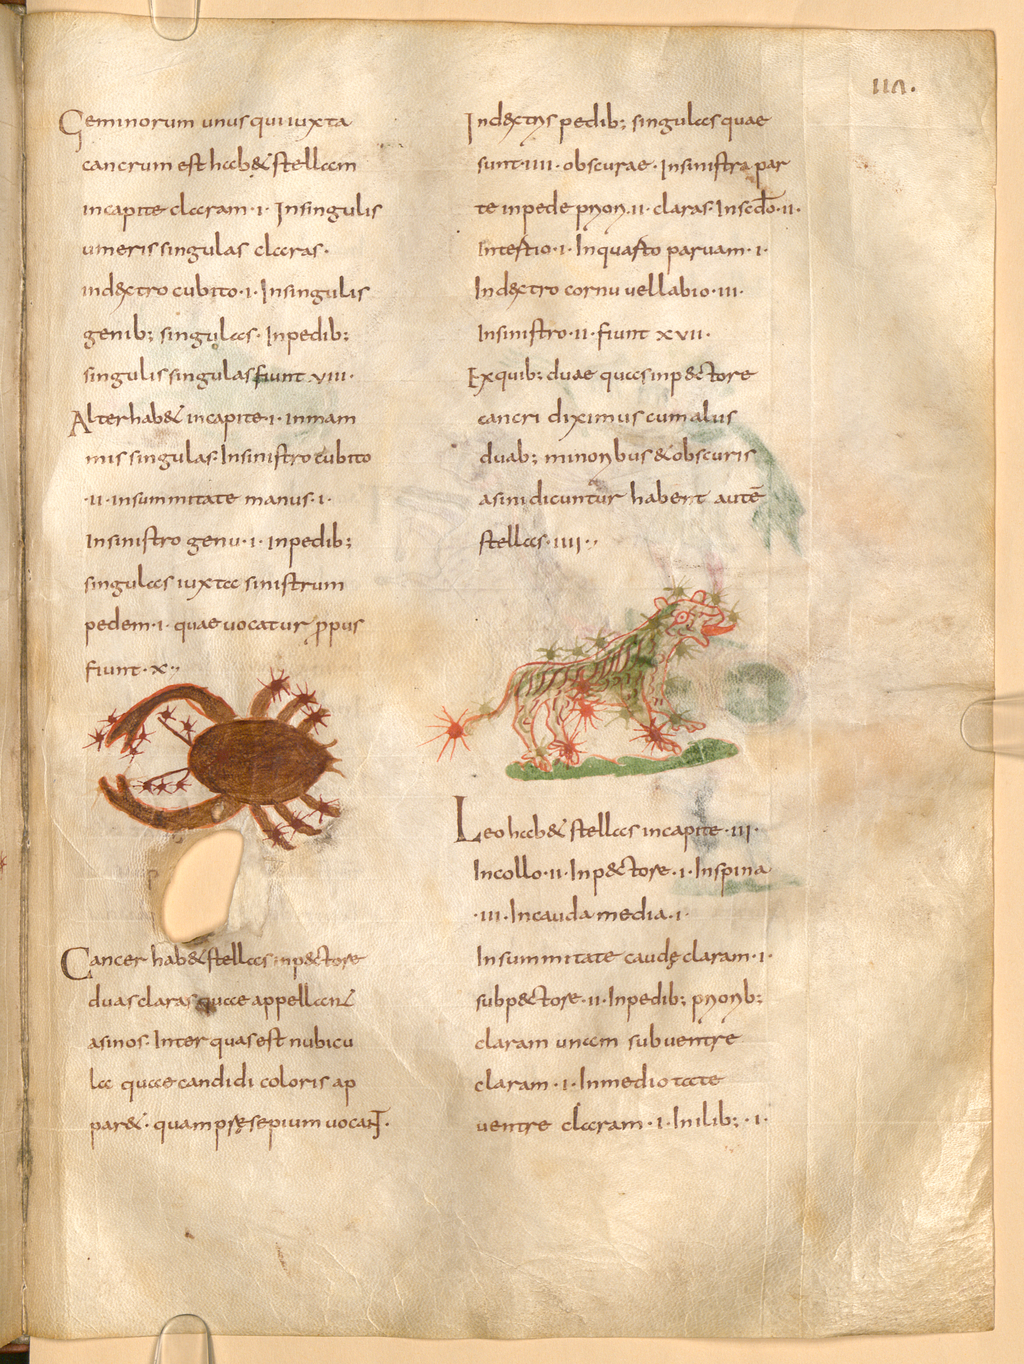 117.
Geminorum unus qui iuxta
cancrum est hab& stellam
in capite claram ·i· In singulis
umeris singulas claras·
in dextro cubito ·i· In singulis
genib; singulas· In pedib;
singulis singulas fiunt ·viii·
Alter hab& in capite ·i· in mam
mis singulas· In sinistro cubito
·ii· in summitate manus ·i·
In sinistro genu ·i· In pedib;
singulas iuxta sinistrum
pedem ·i· quae vocatur propus
fiunt ·x·
Cancer hab& stellas in p&ctore
duas claras quae appellant
asinos· Inter quas est nubicu
la quae candidi coloris ap
par&· quam psęsepium vocant·
In dextris pedib; singulas quae
sunt ·iiii· obscurae· In sinistra par
te in pede priori ·ii· claras· In secdo ·ii·
In tertio ·i· In quarto parvam ·i·
In dextro cornu vel labio ·iii·
In sinistro ·ii· fiunt xvii·
Ex quib; duae quas in p&ctore
cancri diximus cum aliis
duab; minoribus & obscuris
asini dicuntur habent autē
stellas ·iiii·
Leo hab& stellas in capite ·iii·
In collo ·ii· In p&ctore ·i· In spina
·iii· In cauda media ·i·
In summitate caudę claram ·i·
sub p&ctore ·ii· In pedib; priorib;
claram unam sub ventre
claram ·i· In medio tate
ventre claram ·i· In ilib; ·i·